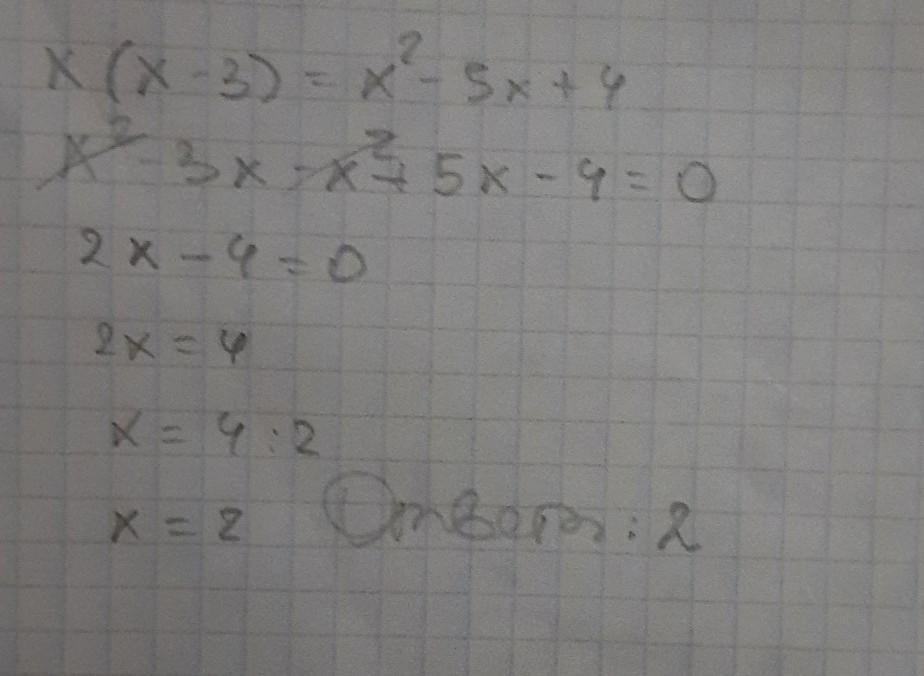 x(x-3) = x² - 5x + 4
x² - 3x - x² + 5x - 4 = 0
2x - 4 = 0
2x = 4
x = 4 : 2
x = 2 Ответ: 2